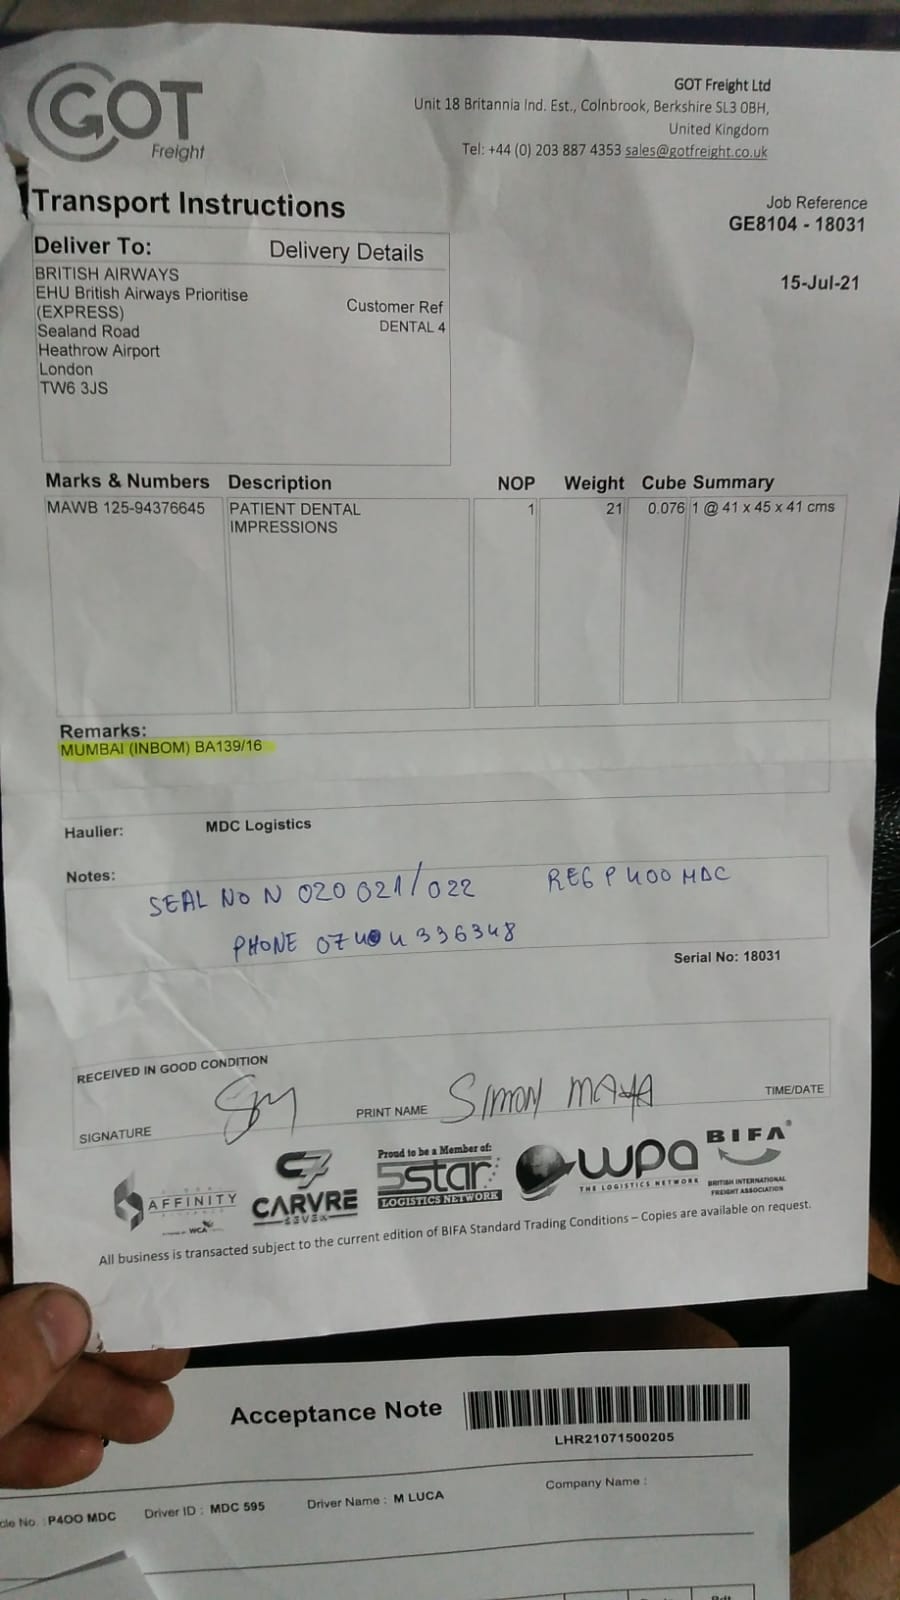 GOT
Freight
GOT Freight Ltd
Unit 18 Britannia Ind. Est., Colnbrook, Berkshire SL3 0BH,
United Kingdom
Tel: +44 (0) 203 887 4353 sales@gotfreight.co.uk
Transport Instructions
Job Reference
GE8104 - 18031
15-Jul-21
Deliver To: Delivery Details
BRITISH AIRWAYS
EHU British Airways Prioritise
(EXPRESS)
Sealand Road
Heathrow Airport
London
TW6 3JS
Customer Ref
DENTAL 4
Marks & Numbers Description NOP Weight Cube Summary
MAWB 125-94376645 PATIENT DENTAL 1 21 0.076 1 @ 41 x 45 x 41 cms
IMPRESSIONS
Remarks:
MUMBAI (INBOM) BA139/16
Haulier: MDC Logistics
Notes:
SEAL NO N 020 021/022 REG P400 MDC
PHONE 07404336348
Serial No: 18031
RECEIVED IN GOOD CONDITION
SIGNATURE PRINT NAME SIMON MAYA TIME/DATE
AFFINITY
WCA
CARVRE
SEVEN
Proud to be a Member of:
5star
LOGISTICS NETWORK
wpa
THE LOGISTICS NETWORK
BIFA
BRITISH INTERNATIONAL
FREIGHT ASSOCIATION
All business is transacted subject to the current edition of BIFA Standard Trading Conditions – Copies are available on request.
Acceptance Note
LHR21071500205
cle No. : P400 MDC Driver ID : MDC 595 Driver Name : M LUCA Company Name :